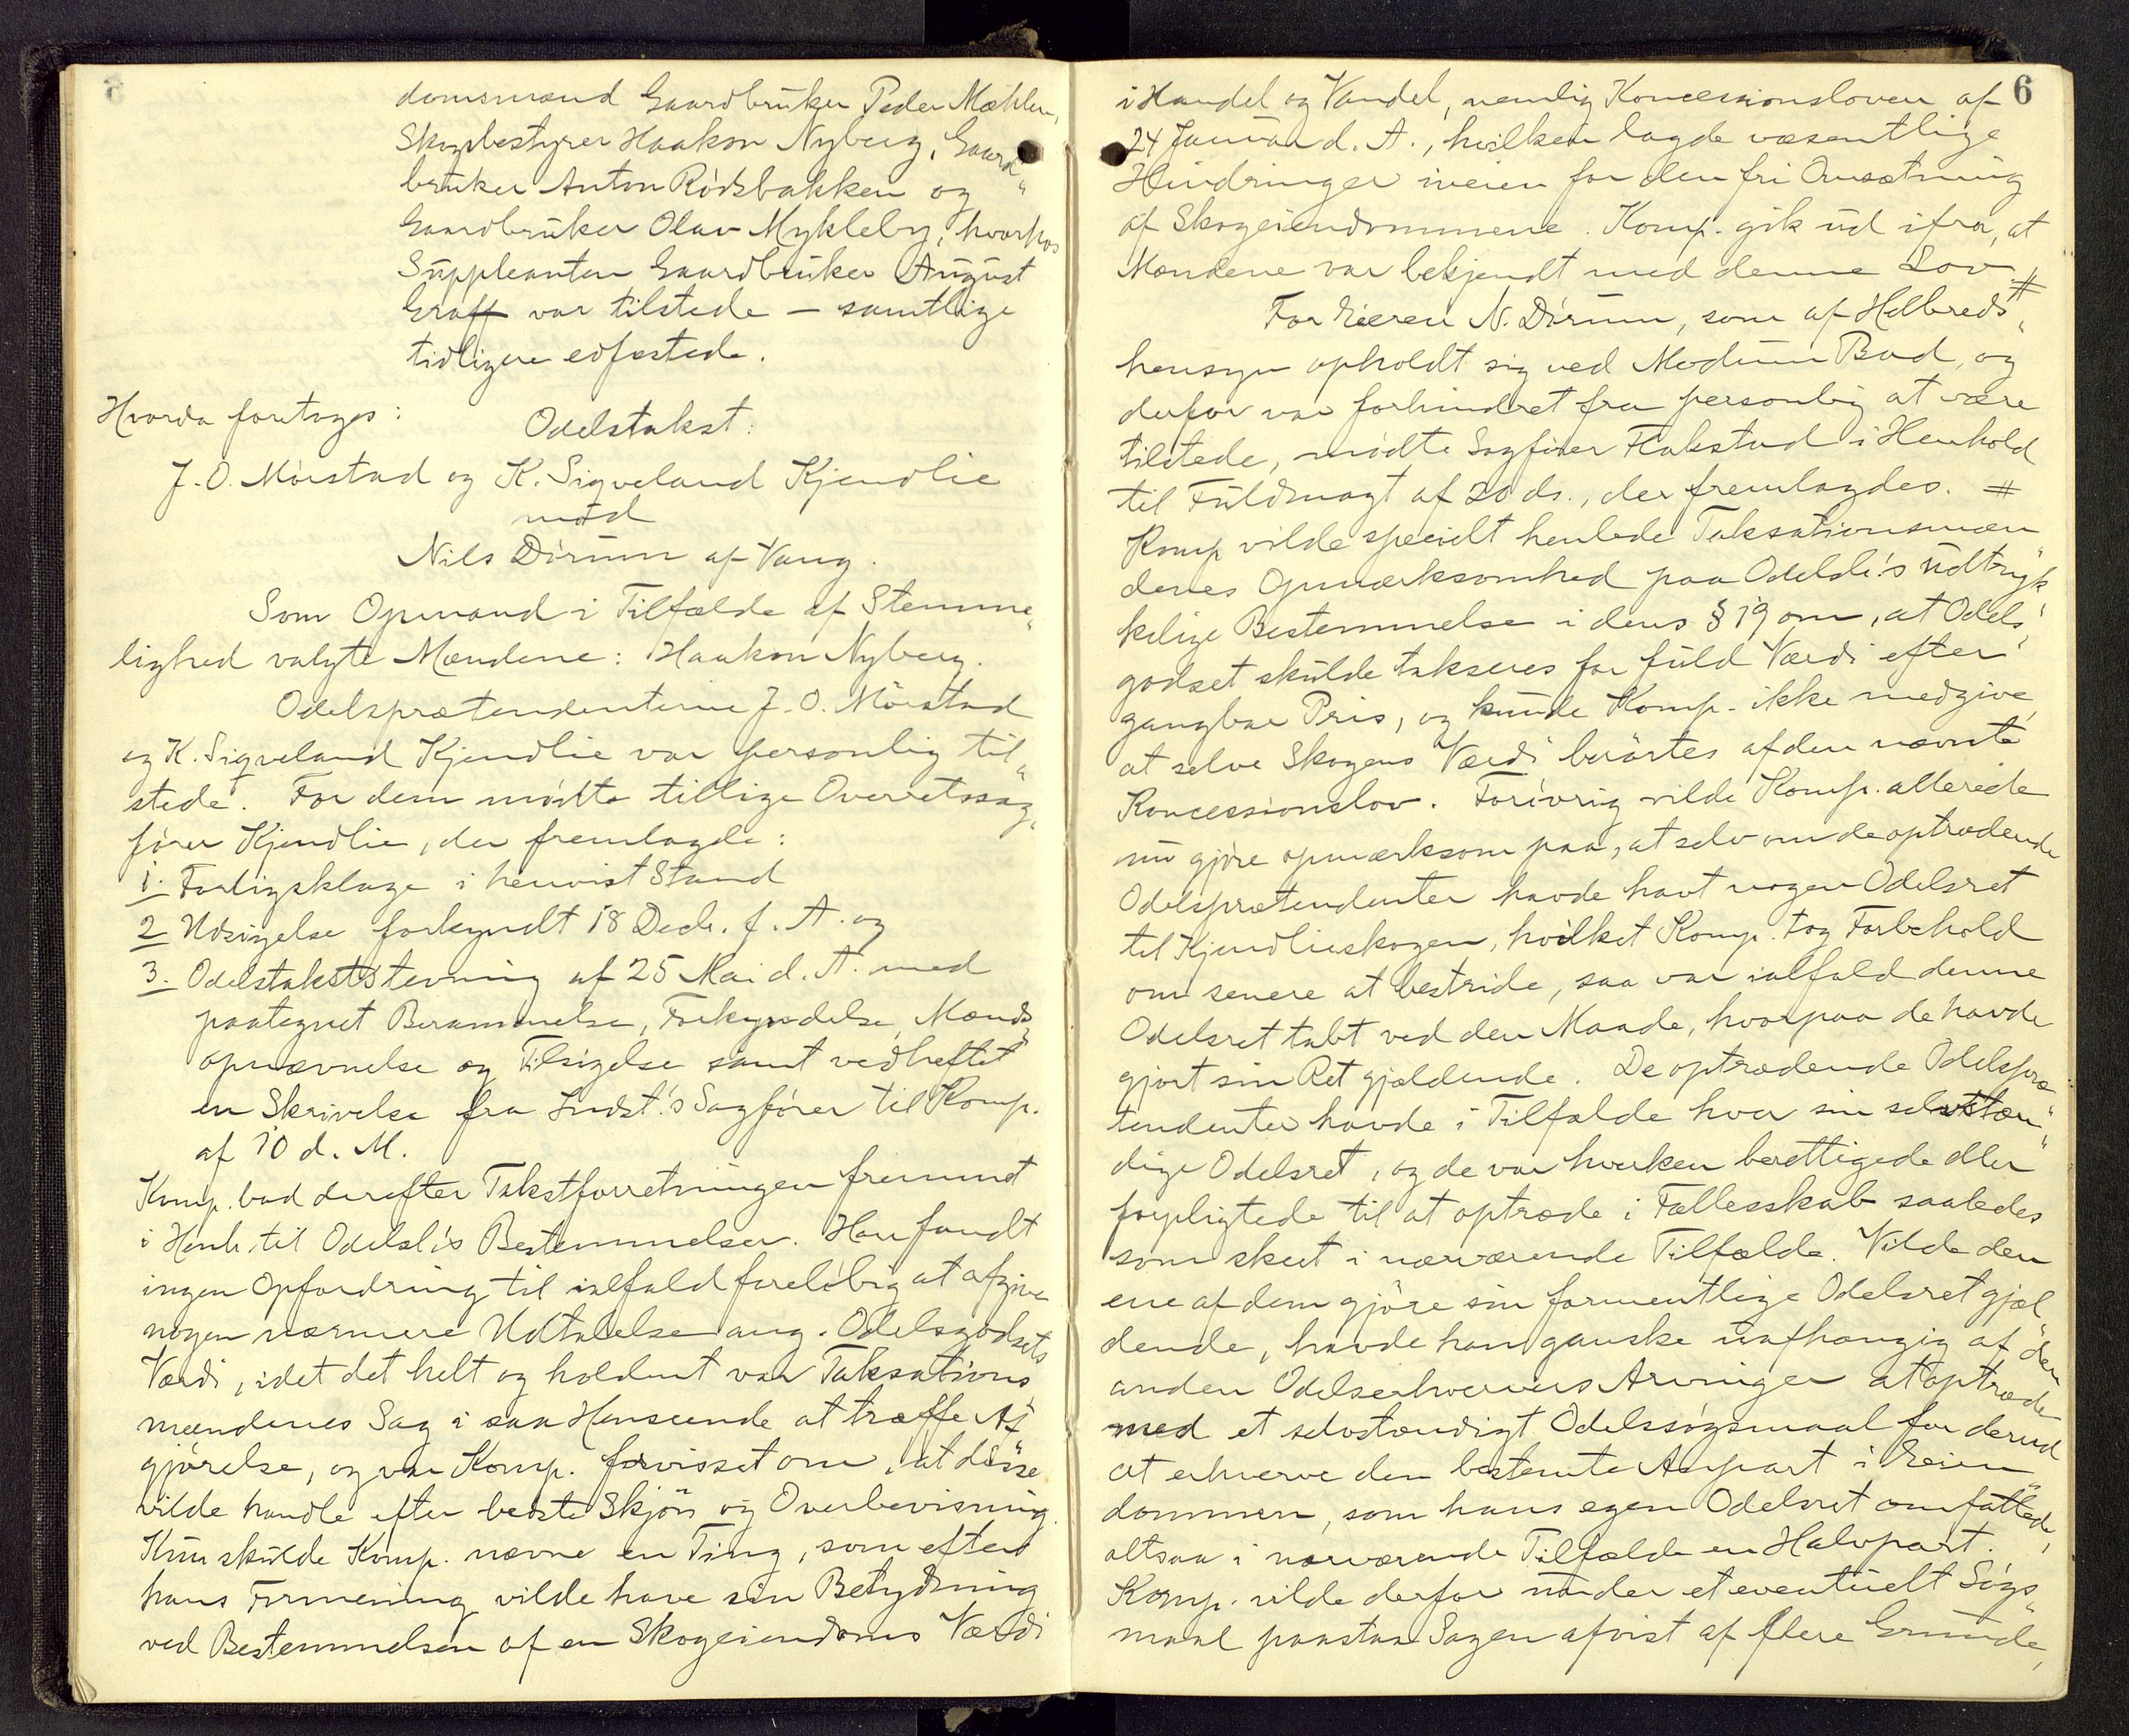 domsmænd Gaardbruker Peder Mæhlen,
Skogbestyrer Haakon Nyberg, Gaard„
bruker Anton Rödsbakken og
Gaardbruker Olav Mykleby, hvorhos
Suppleanten Gaardbruker August
Graff var tilstede – samtlige
tidligere edfæstede.
Hvorda foretoges:
Odelstakst:
J. O. Mörstad og K. Sigveland Kjendlie
mod
Nils Dörum af Vang.
Som Opmand i Tilfælde af Stemme„
lighed valgte Mændene: Haakon Nyberg.
Odelsprætendenterne J. O. Mörstad
og K. Sigveland Kjendlie var personlig til„
stede. For dem mödte tillige Overretssag„
förer Kjendlie, der fremlagde:
1. Forligsklage i henvist Stand
2 Udsigelse forkyndt 18 Decb. f. A. og
3. Odelstakststevning af 25 Mai d. A. med
paategnet Berammelse, Forkyndelse, Mænds„
opnævnelse og Tilsigelse samt vedheftet
en Skrivelse fra Indst.'s Sagförer til Komp.
af 10 d. M.
Komp. bad derefter Takstforretningen fremmet
i Henh. til Odelsl's Bestemmelser. Han fandt
ingen Opfordring til ialfald forelöbig at afgive
nogen nærmere Udtalelse ang. Odelsgodsets
Værdi, idet det helt og holdent var Taksations„
mændenes Sag i saa Henseende at træffe Af„
gjörelse, og var Komp. forvisset om, at disse
vilde handle efter bedste Skjön og Overbevisning.
Kun skulde Komp. nævne en Ting, som efter
hans Formening vilde have sin Betydning
ved Bestemmelsen af en Skogeiendoms Værdi
6
i Handel og Vandel, nemlig Koncessionsloven af
24 Januar d. A., hvilken lagde væsentlige
Hindringer iveien for den fri Omsætning
af Skogeiendommene. Komp. gik ud ifra, at
Mændene var bekjendt med denne Lov #
For Eieren N. Dörum, som af Helbreds„
hensyn opholdt sig ved Modum Bad, og
derfor var forhindret fra personlig at være
tilstede, mödte Sagförer Flakstad i Henhold
til Fuldmagt af 20 ds., der fremlagdes. #
Komp vilde specielt henlede Taksationsmæn„
denes Opmærksomhed paa Odelsl's udtryk„
kelige Bestemmelse i dens § 19 om, at Odels„
godset skulde takseres for fuld Værdi efter
gangbar Pris, og kunde Komp. ikke medgive,
at selve Skogens Værdi berörtes af den nævnte
Koncessionslov. Forövrig vilde Komp. allerede
nu gjöre opmærksom paa, at selv om de optrædende
Odelsprætendenter havde havt nogen Odelsret
til Kjendlieskogen, hvilket Komp. tog Forbehold
om senere at bestride, saa var ialfald denne
Odelsret tabt ved den Maade, hvorpaa de havde
gjort sin Ret gjældende. De optrædende Odelspræ„
tendenter havde i Tilfælde hver sin selvstæn„
dige Odelsret, og de var hverken berettigede eller
forpligtede til at optræde i Fællesskab saaledes
som skeet i nærværende Tilfælde. Vilde den
ene af dem gjöre sin formentlige Odelsret gjæl„
dende, havde han ganske uafhængig af den
anden Odelserhververs Arvinger at optræde
med et selvstændigt Odelssögsmaal for derved
at erhverve den bestemte Anpart i Eien„
dommen, som hans egen Odelsret omfattede,
altsaa i nærværende Tilfælde en Halvpart.
Komp. vilde derfor under et eventuelt Sögs„
maal paastaa Sagen afvist af flere Grunde,